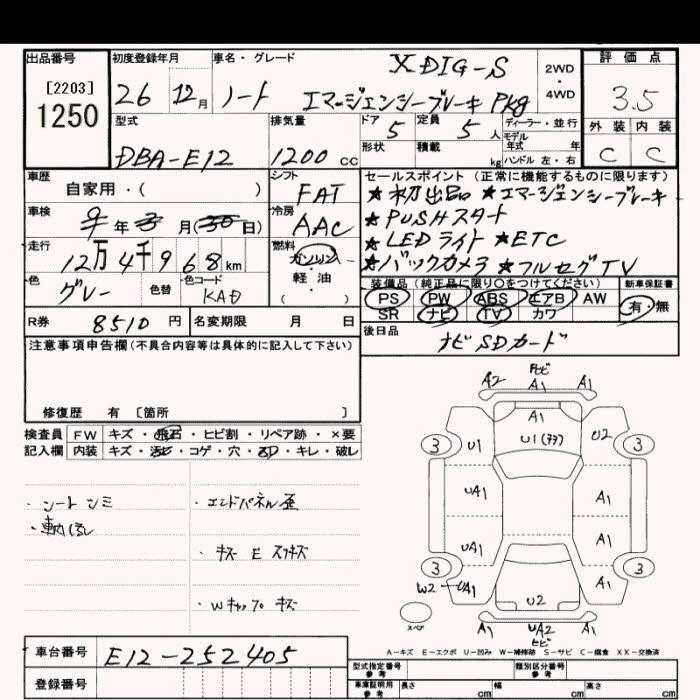 出品番号 初度登録年月 車名・グレード 評価点
[2203]
1250
X DIG-S 2WD
・
4WD
26 12月 ノート エマージェンシーブレーキ Pkg 3.5
型式 排気量 ドア 定員 ディーラー・並行
5 5人 モデル年式 年 外装 内装
DBA-E12 1200cc 形状 積載 kg ハンドル 左・右 C C
車歴 シフト セールスポイント (正常に機能するものに限ります)
自家用・( ) FAT ★初出品 ★エマージェンシーブレーキ
車検 冷房 ★PUSHスタート
年 月( 日) AAC ★LEDライト ★ETC
走行 燃料 ★バックカメラ ★フルセグTV
12万4千968km ガソリン
・
色 色替 色コード 軽油
グレー KAD ( )
装備品 (純正品に限り○をつけてください) 新車保証書
PS PW ABS エアB AW 有・無
SR ナビ TV カワ
R券 8510円 名変期限 月 日 後日品
ナビSDカード
注意事項申告欄(不具合内容等は具体的に記入して下さい)
修復歴 有 [箇所 ]
検査員 FW キズ・飛石・ヒビ割・リペア跡・×要
記入欄 内装 キズ・汚レ・コゲ・穴・・キレ・破レ
・シートシミ ・エンドパネル歪
・キズ E スリキズ
・Wキャップ キズ
A2 A1 A1
A1
3 U1 U1 U2 3
UA1 A1
UA1 A1
3 W2 UA1 A1 3
U2
スペア A1 UA2 A1
ヒビ
A-キズ E-エクボ U-凹み W-補修跡 S-サビ C-腐食 XX-交換済
車台番号 E12-252405
型式指定番号 参考 類別区分番号 参考
登録番号 車庫証明用 参考 長さ cm 幅 cm 高さ cm